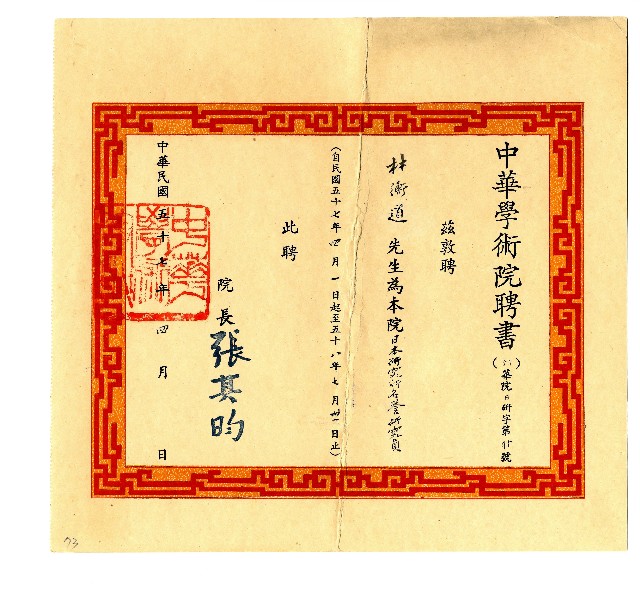 中華學術院聘書
(57)華院日研字第廿號
茲敦聘
林衡道 先生為本院日本研究所名譽研究員
(自民國五十七年四月一日起至五十八年七月卅一日止)
此聘
院長 張其昀
中華民國五十七年四月 日
73